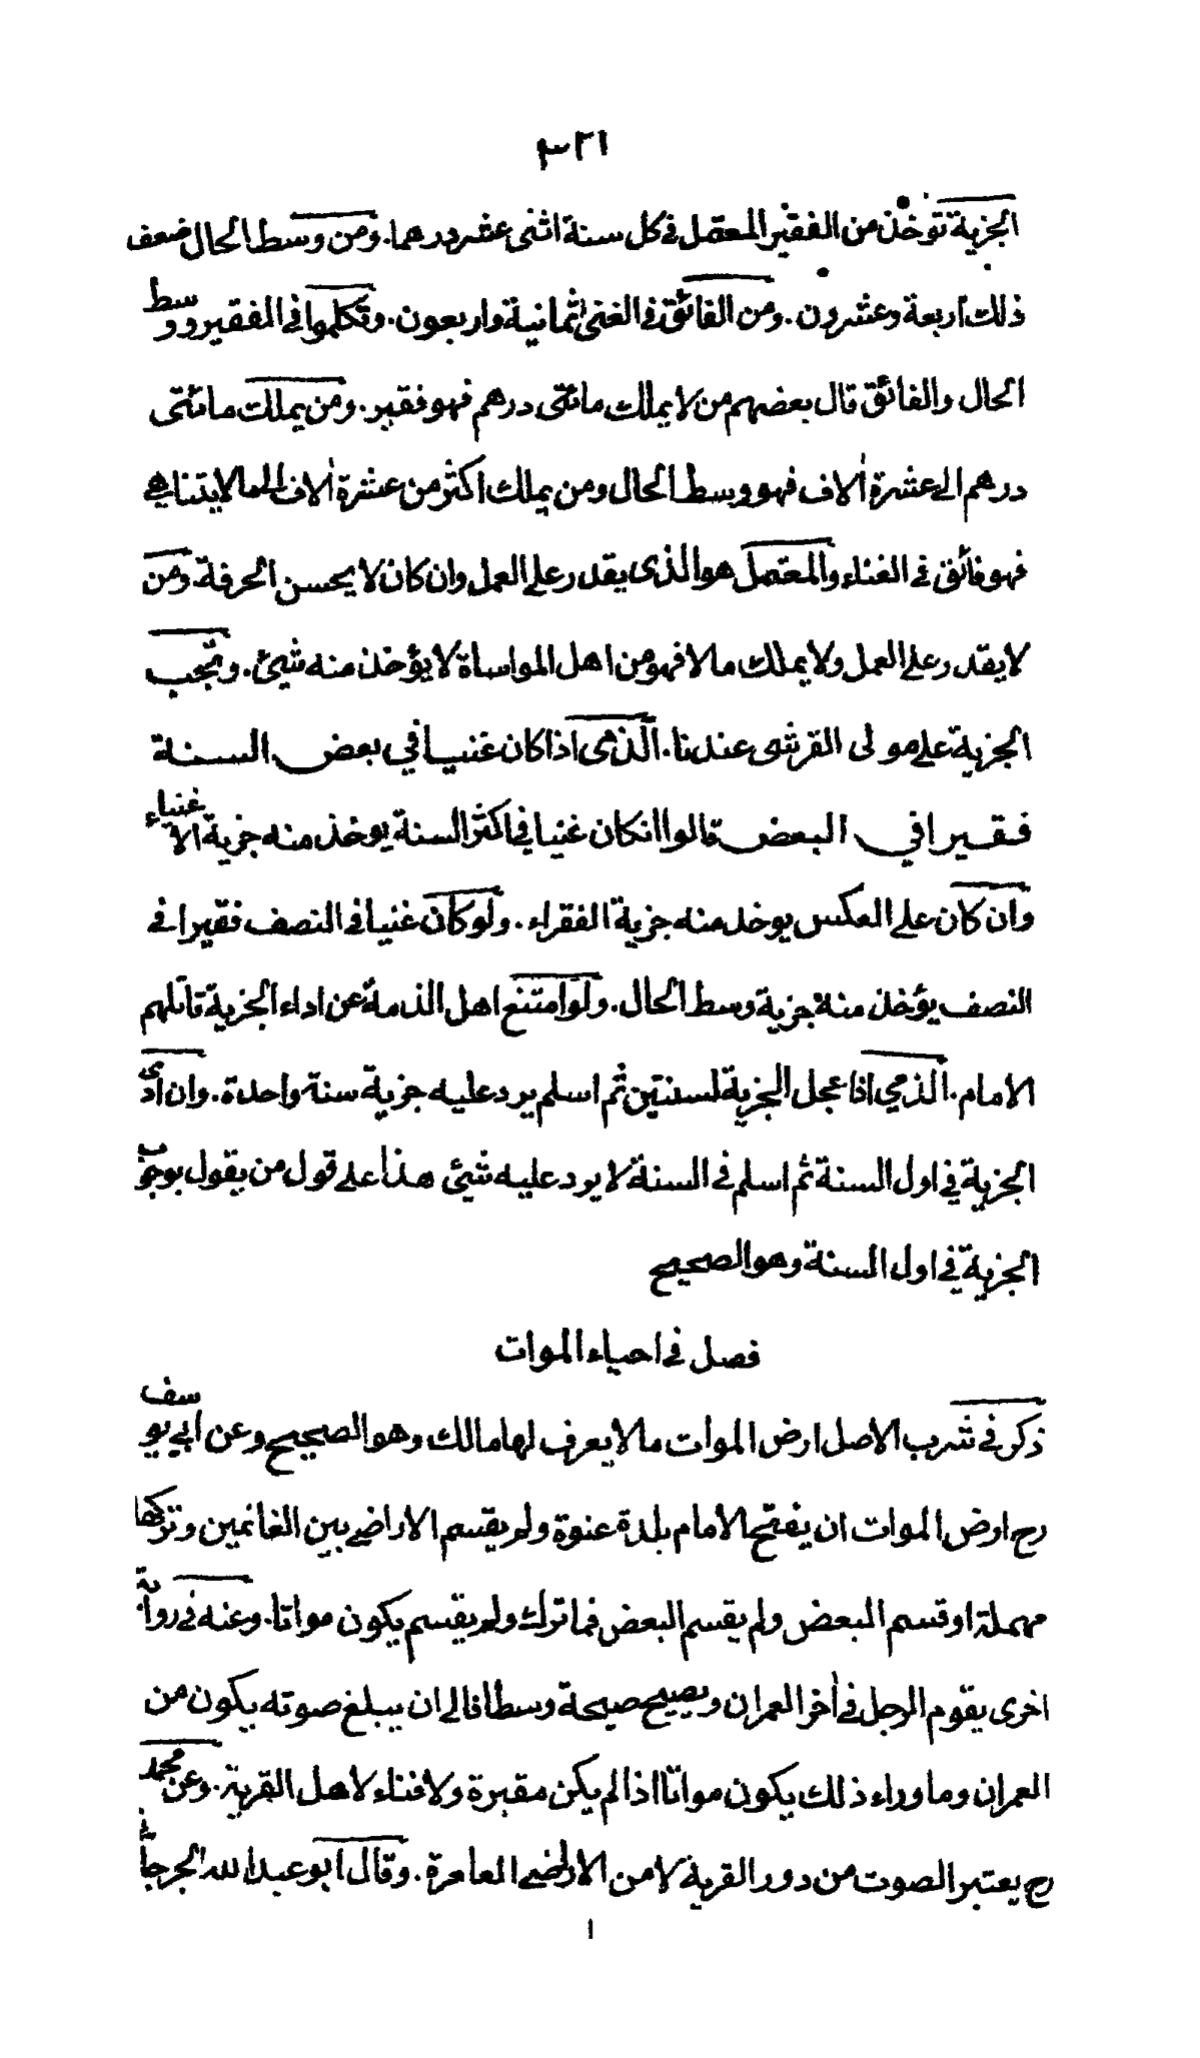 ٣٢١
الجزية تؤخذ من الفقير المعتمل في كل سنة اثنى عشر درهما. ومن وسط الحال ضعف
ذلك اربعة وعشرون. ومن الفائق في الغنى ثمانية واربعون. وتكلموا في الفقير ووسط
الحال والفائق قال بعضهم من لا يملك مائتى درهم فهو فقير. ومن يملك مائتى
درهم الى عشرة الاف فهو وسط الحال ومن يملك اكثر من عشرة الاف الى ما لا يتناهى
فهو فائق في الغناء والمعتمل هو الذى يقدر على العمل وان كان لا يحسن الحرفة ومن
لا يقدر على العمل ولا يملك مالا فهو من اهل المواساة لا يؤخذ منه شيئ. وتجب
الجزية على مولى القرشى عندنا. الذمى اذا كان غنيا في بعض السنة
فقيرا في البعض قالوا انكان غنيا في اكثر السنة يوخذ منه جزية الاغنياء
وان كان على العكس يوخذ منه جزية الفقراء. ولو كان غنيا في النصف فقيرا في
النصف يؤخذ منه جزية وسط الحال. ولو امتنع اهل الذمة عن اداء الجزية قاتلهم
الامام. الذمي اذا عجل الجزية لسنتين ثم اسلم يرد عليه جزية سنة واحدة. وان ادى
الجزية في اول السنة ثم اسلم في السنة لا يرد عليه شيئ هذا على قول من يقول بوجوب
الجزية في اول السنة وهو الصحيح
فصل في احياء الموات
ذكر في شرب الاصل ارض الموات ما لا يعرف لها مالك وهو الصحيح وعن ابي يوسف
رح ارض الموات ان يفتح الامام بلدة عنوة ولم يقسم الاراضي بين الغانمين وتركها
مهملة او قسم البعض ولم يقسم البعض فما ترك ولم يقسم يكون مواتا. وعنه في رواية
اخرى يقوم الرجل في أخر العمران ويصيح صيحة وسطا فالى ان يبلغ صوته يكون من
العمران وما وراء ذلك يكون مواتا اذا لم يكن مقبرة ولا فناء لاهل القرية. وعن محمد
رح يعتبر الصوت من دور القرية لا من الاراضي العامرة. وقال ابو عبد الله الجرجاني
١